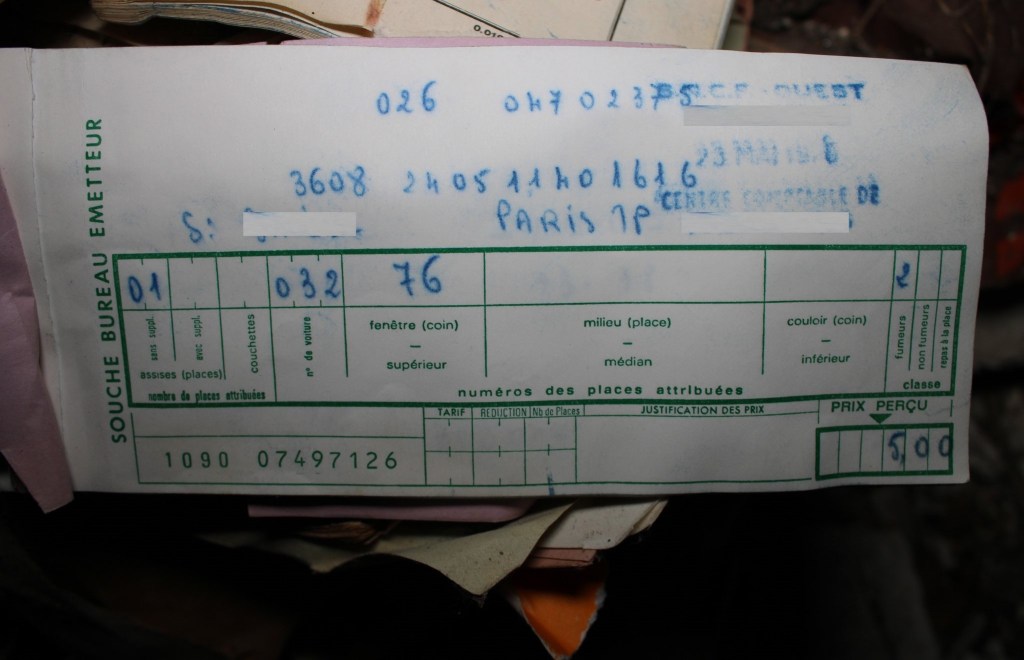 0.01
026 047 02375
S.N.C.F. OUEST
23 MAI
3608 2405 1140 1616
CENTRE COMPTABLE DE
S:
PARIS 1P
SOUCHE BUREAU EMETTEUR
01 032 76 2
sans suppl.
avec suppl.
couchettes
assises (places)
nombre de places attribuées
n° de voiture
fenêtre (coin)
–
supérieur
milieu (place)
–
médian
couloir (coin)
–
inférieur
numéros des places attribuées
fumeurs
non fumeurs
repas à la place
classe
TARIF REDUCTION Nb de Places JUSTIFICATION DES PRIX PRIX PERÇU
1090 07497126
5,00